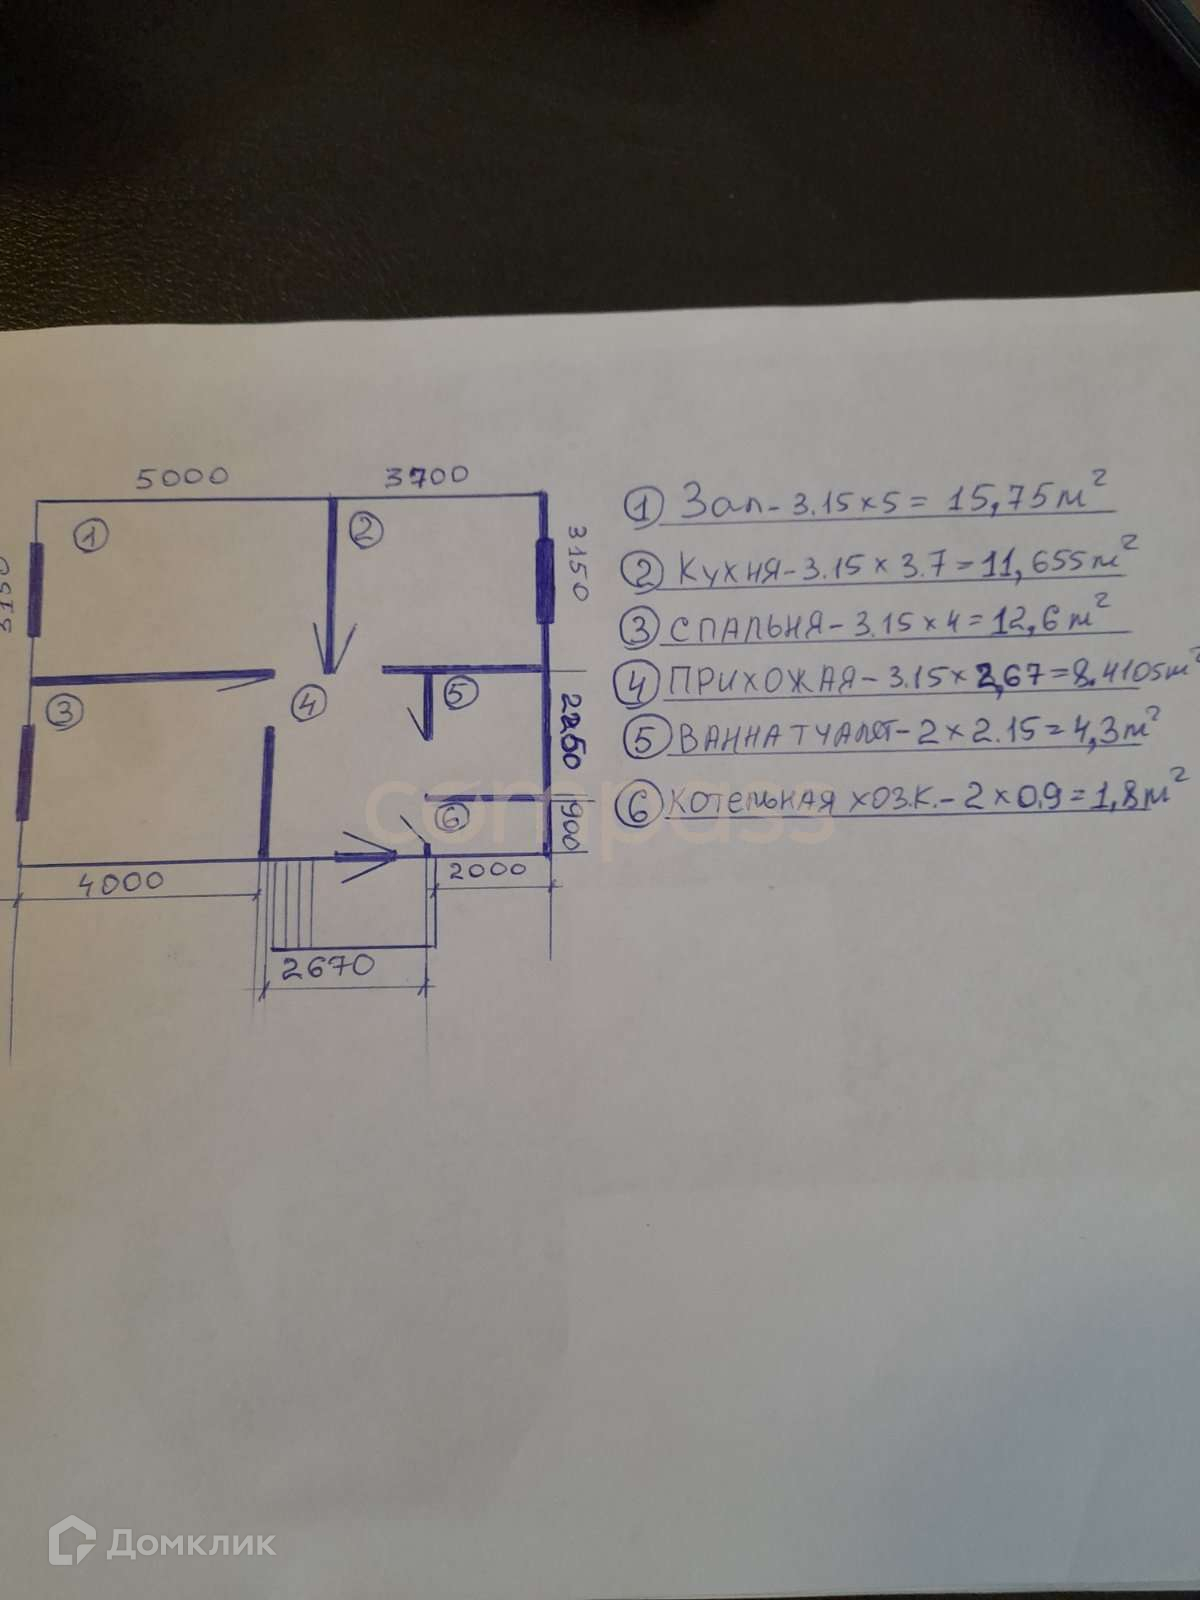 5000
3700
① Зал - 3.15×5 = 15,75м²
② Кухня - 3.15 × 3.7 = 11,655м²
③ СПАЛЬНЯ - 3.15 × 4 = 12,6 м²
④ ПРИХОЖАЯ - 3.15 × 2,67 = 8.4105м²
⑤ ВАННА ТУАЛЕТ - 2 × 2.15 = 4,3м²
⑥ КОТЕЛЬНАЯ ХОЗ.К. - 2 × 0.9 = 1,8м²
①
②
3150
3150
③
④
⑤
2250
⑥
900
4000
2000
2670
compass
Домклик